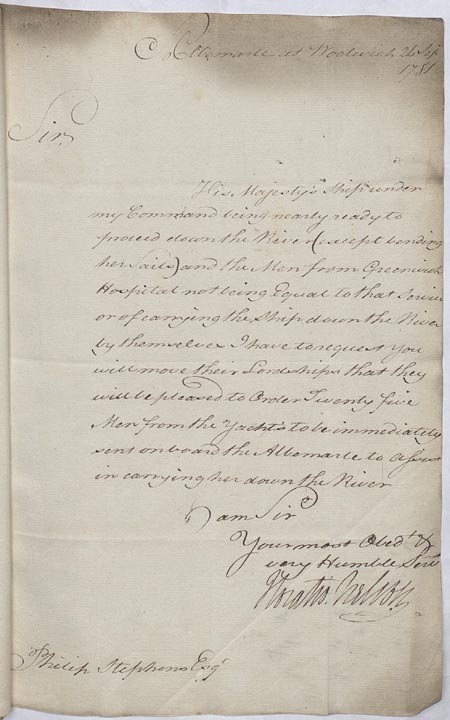 Albemarle at Woolwich 24 Sep
1781
Sir,
His Majesty's Ship under
my Command being nearly ready to
proceed down the River (except bending
her Sails) and the Men from Greenwich
Hospital not being Equal to that Service
or of carrying the Ship down the River
by themselves I have to request You
will move their Lordships that they
will be pleased to Order Twenty five
Men from the Yachts to be immediately
sent onboard the Albemarle to assist
in carrying her down the River
I am Sir
Your most Obedt &
very Humble Servt
Horatio Nelson
Philip Stephens Esqr